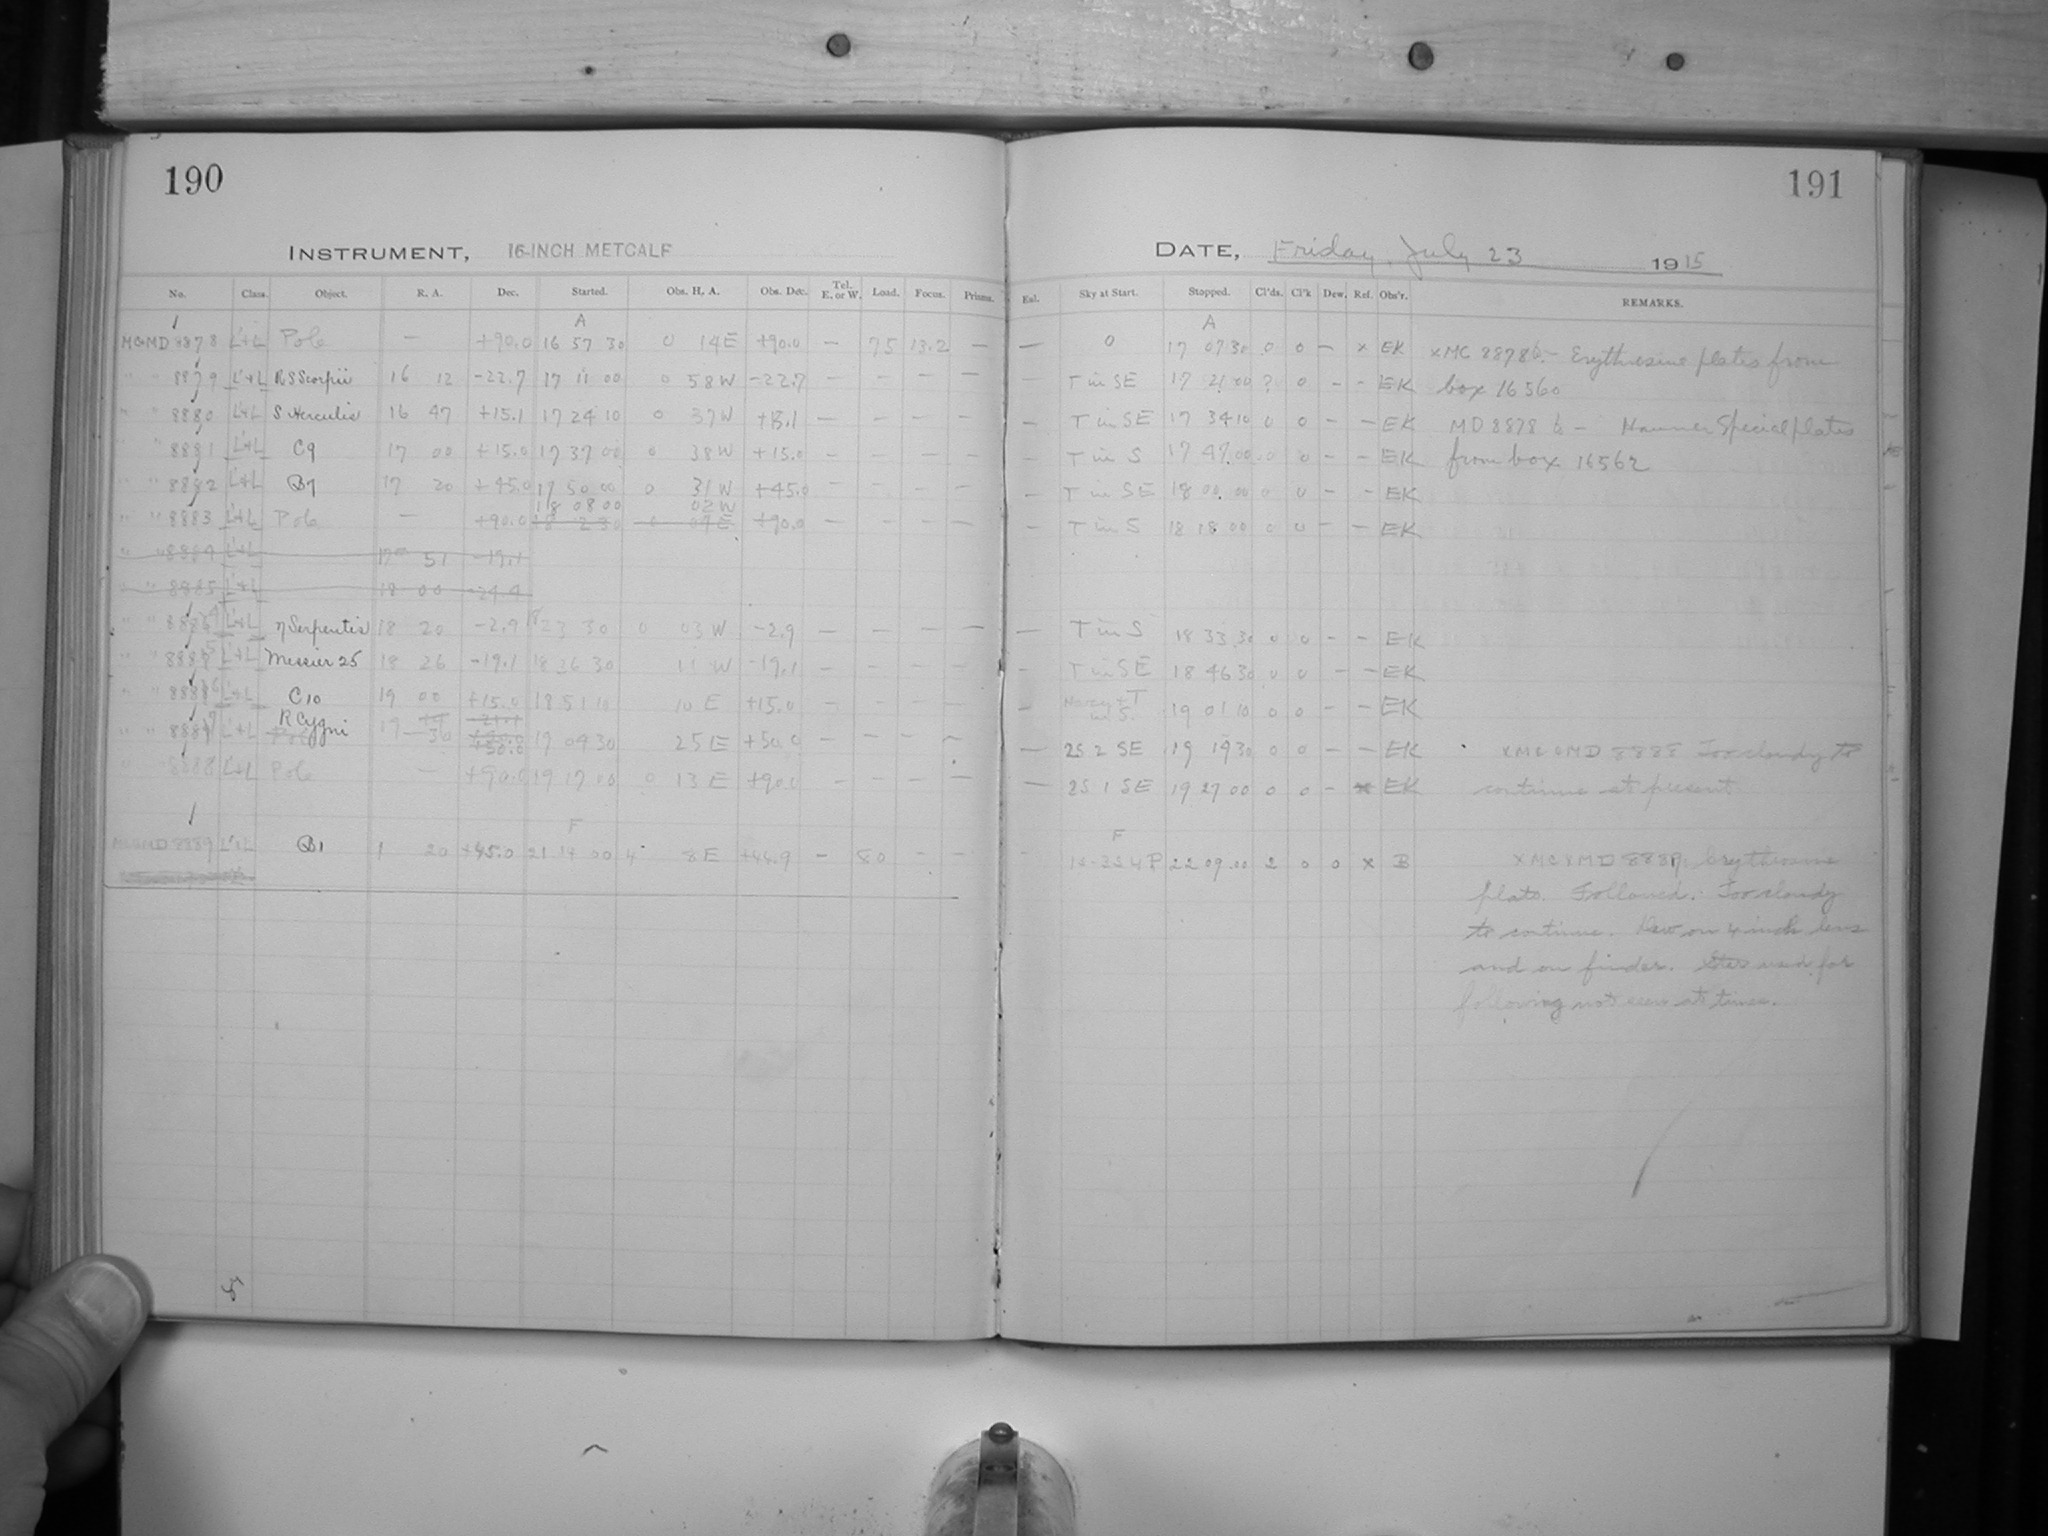 190
191
INSTRUMENT, 16-INCH METCALF
DATE, Friday, July 23 1915
No. Class. Object. R. A. Dec. Started. Obs. H. A. Obs. Dec. Tel. E. or W. Load. Focus. Prisms.
Eal. Sky at Start. Stopped. Cl'ds. Cl'k Dew. Ref. Obs'r. REMARKS.
A
A
MC&MD 8878 L'+L Pole — +90.0 16 57 30 0 14E +90.0 — 75 13.2 —
— 0 17 07 30 0 0 — x EK xMC 8878 — Erythrosine plates from
" " 8879 L'+L RS Scorpii 16 12 -22.7 17 11 00 0 58W -22.7 — — — —
— T in SE 17 21 00 ? 0 - - EK box 16560
" " 8880 L'+L S Herculis 16 47 +15.1 17 24 10 0 37W +15.1 — — — —
— T in SE 17 34 10 0 0 — — EK MD 8878 — Hammer Special plates
" " 8881 L'+L C9 17 00 +15.0 17 37 00 0 38W +15.0 — — — —
— T in S 17 47 00 0 0 — — EK from box 16562
" " 8882 L'+L B7 17 20 +45.0 17 50 00 0 31W +45.0 — — — —
— T in SE 18 00 00 0 0 — - EK
18 08 00 02W
" " 8883 L'+L Pole — +90.0 0 07E +90.0 — — — —
— T in S 18 18 00 0 0 — — EK
" " 8884 L'+L 17 51 -19.1
" " 8885 L'+L 18 00 -24.4
" " 8884 L'+L η Serpentis 18 20 -2.9 18 23 30 0 03W -2.9 — — — —
— T in S 18 33 30 0 0 — — EK
" " 8885 L'+L Messier 25 18 26 -19.1 18 36 30 11 W -19.1 — — — —
— T in SE 18 46 30 0 0 — — EK
" " 8886 L'+L C10 19 00 +15.0 18 51 10 10 E +15.0 — — — —
— Hazy + T in S. 19 01 10 0 0 — — EK
" " 8887 L'+L Pole R Cygni 19 36 +50.0 19 04 30 25E +50.0 — — — —
— 2S 2 SE 19 14 30 0 0 — — EK xMC&MD 8888 Too cloudy to
" 8888 L'+L Pole — +90.0 19 17 00 0 13 E +90.0 — — — —
— 2S 1 SE 19 27 00 0 0 — x EK continue at present
F
F
MC&MD 8889 L'+L B1 1 20 +45.0 21 14 00 4 8E +44.9 — 80 — —
22 09 00 2 0 0 x B xMC&MD 8889. Erythrosine
plate. Followed. Too cloudy
to continue. Dew on 4 inch lens
and on finder. Star used for
following not seen at times.